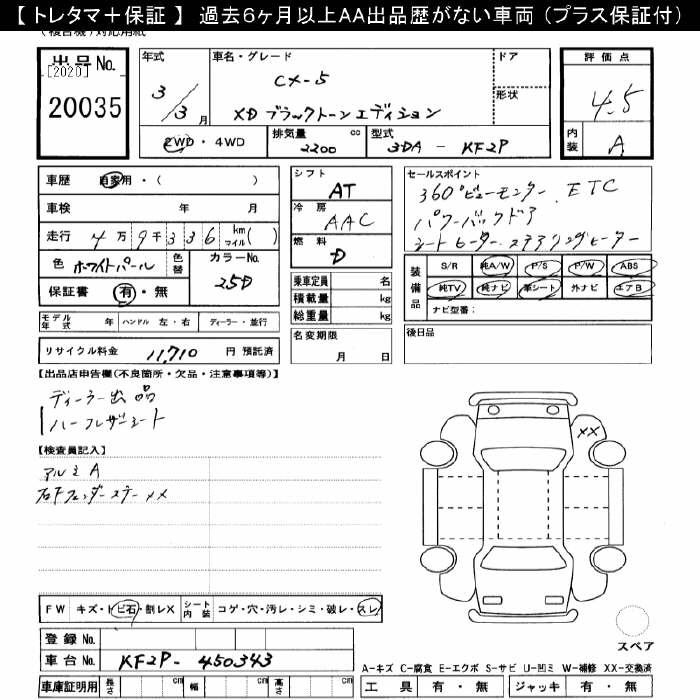 【 トレタマ＋保証 】 過去６ヶ月以上ＡＡ出品歴がない車両（プラス保証付）
出品No.
[2020]
20035
年式
3/3月
車名・グレード
CX-5
XD ブラックトーンエディション
ドア
形状
評価点
4.5
内装
A
2WD・4WD
排気量
2200
cc
型式
3DA - KF2P
車歴 自家用・( )
車検 年 月
走行 4万9千336 km マイル( )
色 ホワイトパール
色替
カラーNo.
25D
保証書 有・無
モデル年式 年 ハンドル 左・右 ディーラー・並行
リサイクル料金 11,710 円 預託済
シフト
AT
冷房
AAC
燃料
D
乗車定員 名
積載量 kg
総重量 kg
名変期限
月 日
セールスポイント
360°ビューモニター ETC
パワーバックドア
シートヒーター ステアリングヒーター
装備品
S/R 純A/W P/S P/W ABS
純TV 純ナビ 革シート 外ナビ エアB
ナビ型番：
後日品
【出品店申告欄(不良箇所・欠品・注意事項等)】
ディーラー出品
ハーフレザーシート
【検査員記入】
アルミA
右Fフェンダーステー XX
XX
FW キズ・トビ石・割レX
シート内装
コゲ・穴・汚レ・シミ・破レ・スレ
登録No.
車台No. KF2P-450343
車庫証明用 長さ cm 幅 cm 高さ cm
スペア
A-キズ C-腐食 E-エクボ S-サビ U-凹ミ W-補修 XX-交換済
工具 有・無 ジャッキ 有・無